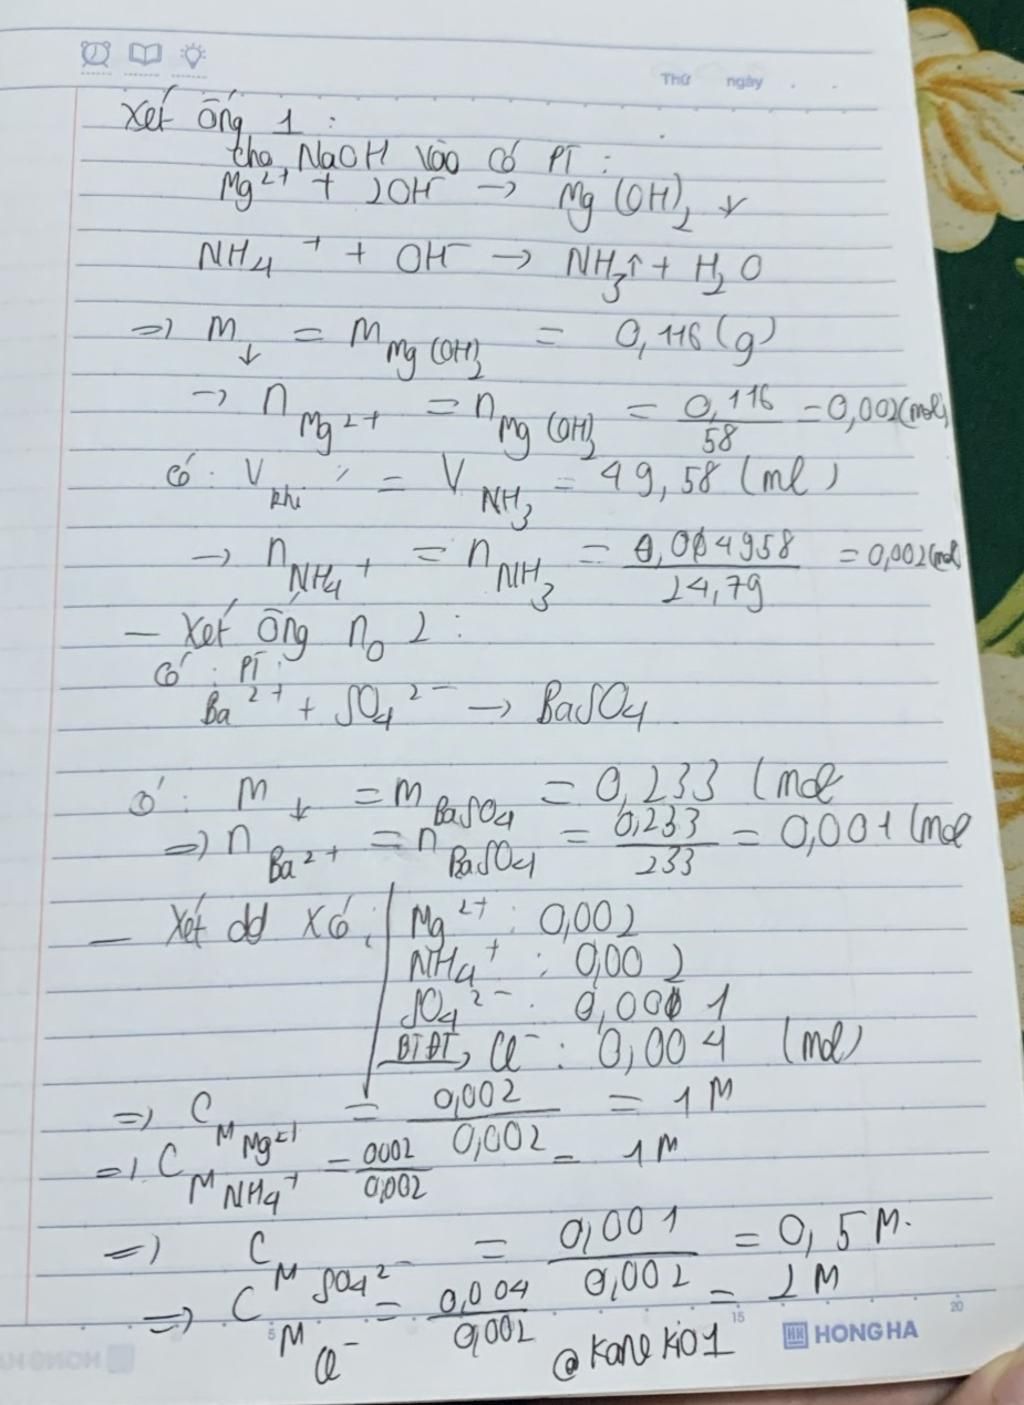 Thứ ngày
Xét ống 1 :
cho NaOH vào có PT :
Mg²⁺ + 2OH⁻ → Mg(OH)₂ ↓
NH₄⁺ + OH⁻ → NH₃↑ + H₂O
=> m↓ = m Mg(OH)₂ = 0,116 (g)
→ n Mg²⁺ = n Mg(OH)₂ = 0,116/58 = 0,002 (mol)
Có : V khí = V NH₃ = 49,58 (ml)
→ n NH₄⁺ = n NH₃ = 0,04958/24,79 = 0,002 (mol
— Xét ống no 2 :
Có : PT :
Ba²⁺ + SO₄²⁻ → BaSO₄
Có : m↓ = m BaSO₄ = 0,233 (mol
=> n Ba²⁺ = n BaSO₄ = 0,233/233 = 0,001 (mol
— Xét dd X có : Mg²⁺ : 0,002
NH₄⁺ : 0,002
SO₄²⁻ : 0,001
BTĐT, Cl⁻ : 0,004 (mol)
=> C M Mg²⁺ = 0,002/0,002 = 1 M
=> C M NH₄⁺ = 0,002/0,002 = 1 M
=> C M SO₄²⁻ = 0,001/0,002 = 0,5 M.
=> C M Cl⁻ = 0,004/0,002 = 2 M
5 15 20
@kanekio1 HH HONG HA